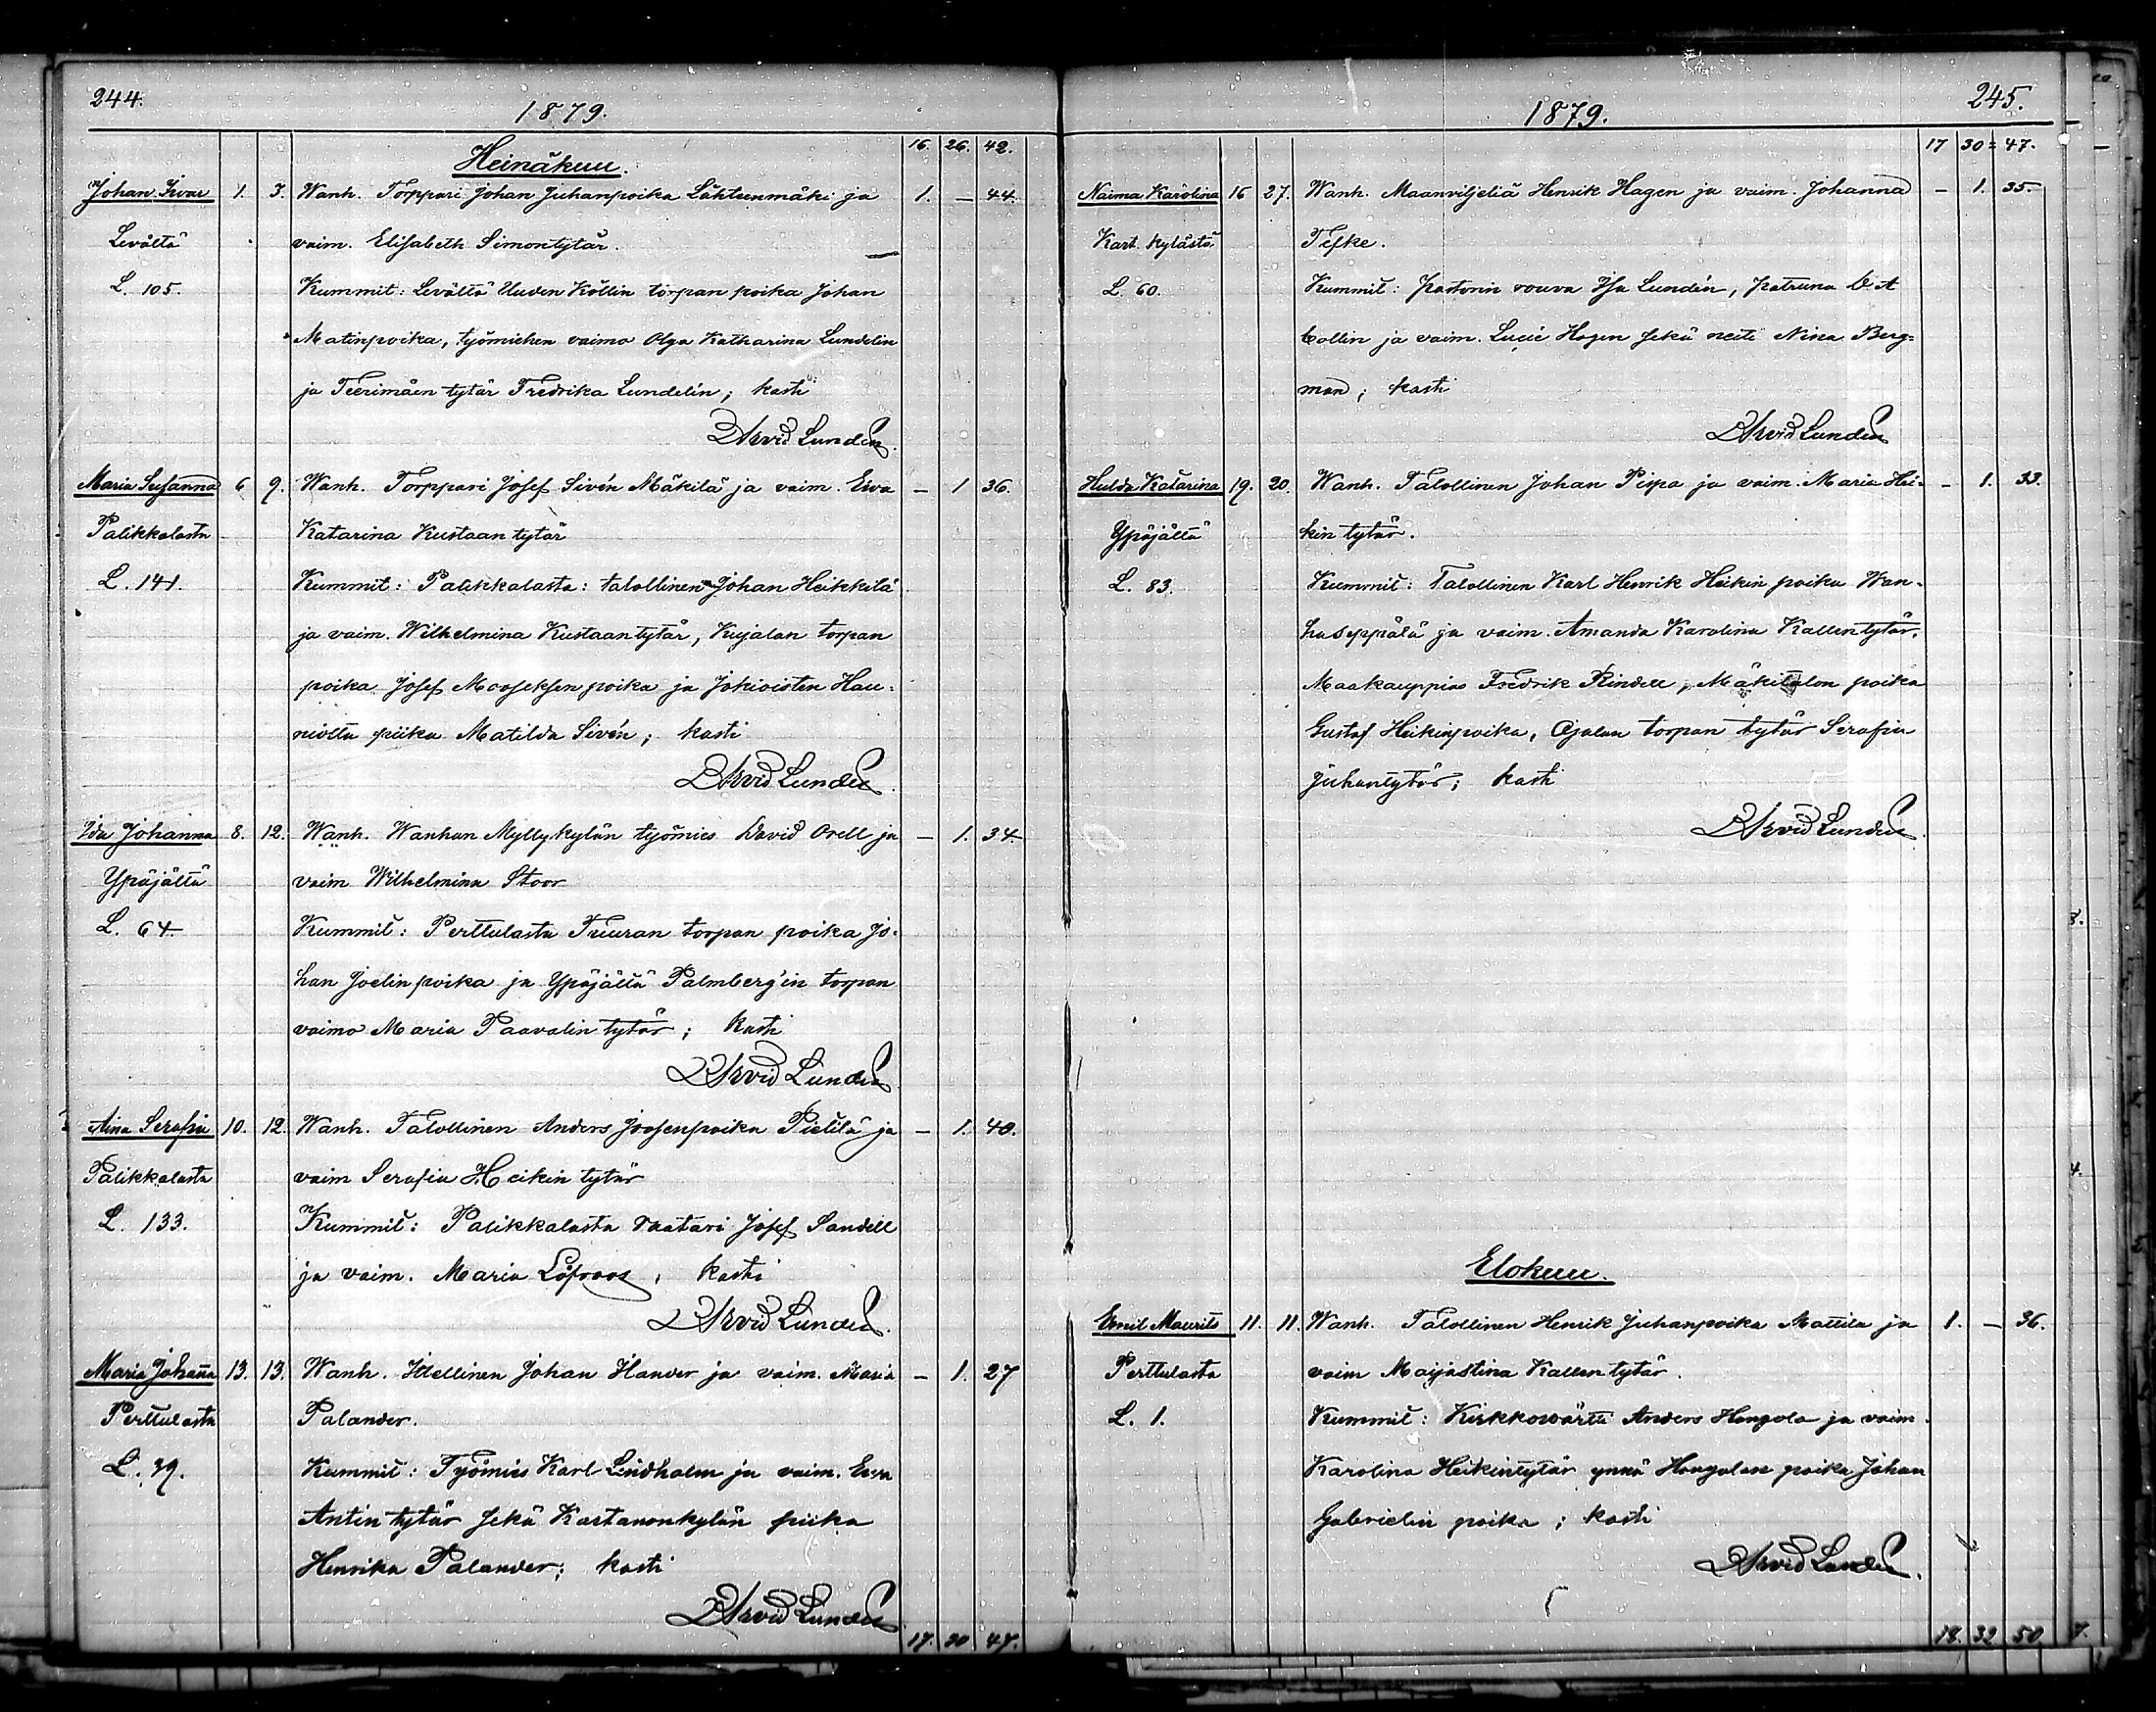 244.
1879.
16. 26. 42.
Heinäkuu.
Johan Ivar 1. 3. Wanh. Torppari Johan Juhanpoika Lähteenmäki ja 1. — 44.
Levältä vaim. Elisabeth Simontytär.
L. 105. Kummit: Levältä Uuden Köllin torpan poika Johan
Matinpoika, työmiehen vaimo Olga Katharina Lundelin
ja Teerimäen tytär Fredrika Lundelin; kasti
Arvid Lundén.
Maria Susanna 6 9. Wanh. Torppari Josef Sivén Mäkilä ja vaim. Ewa — 1 36.
Palikkalasta Katarina Kustaan tytär
L. 141. Kummit: Palikkalasta: talollinen Johan Heikkilä
ja vaim. Wilhelmina Kustaantytär, Kujalan torpan
poika Josef Mooseksen poika ja Jokioisten Hau-
niolta piika Matilda Sivén; kasti
Arvid Lundén.
Ida Johanna 8. 12. Wanh. Wanhan Myllykylän työmies David Orell ja — 1. 34.
Ypäjältä vaim Wilhelmina Stoor
L. 64. Kummit: Perttulasta Truuran torpan poika Jo-
han Joelin poika ja Ypäjältä Palmberg'in torpan
vaimo Maria Paavalin tytär; kasti
Arvid Lundén
Aina Serafia 10. 12. Wanh. Talollinen Anders Joosenpoika Pietilä ja — 1. 40.
Palikkalasta vaim Serafia Heikin tytär
L. 133. Kummit: Palikkalasta räätäri Josef Sandell
ja vaim. Maria Löfroos, kasti
Arvid Lundén.
Maria Johanna 13. 13. Wanh. Itsellinen Johan Hander ja vaim. Maria — 1. 27
Perttulasta Palander.
L. 39. Kummit: Työmies Karl Lindholm ja vaim. Ewa
Antin tytär sekä Kartanonkylän piika
Henrika Palander; kasti
Arvid Lundén
17. 30 47.
245.
1879.
17 30 = 47.
Naima Karolina 16 27. Wanh. Maanviljeliä Henrik Hagen ja vaim. Johanna — 1. 35
Kart. kylästä Teske.
L. 60. Kummit: pastorin rouva Isa Lundén, patruna O A
Collin ja vaim. Lucie Hagen sekä neiti Nina Berg-
man; kasti
Arvid Lundén
Hulda Katarina 19. 20. Wanh. Talollinen Johan Pispa ja vaim. Maria Hei- — 1. 33.
Ypäjältä kin tytär.
L. 83. Kummit: Talollinen Karl Henrik Heikin poika Wan-
haseppälä ja vaim. Amanda Karolina Kallentytär,
Maakauppias Fredrik Rindell, Mäkitalon poika
Gustaf Heikinpoika, Ojalan torpan tytär Serafia
Juhantytär; kasti
Arvid Lundén.
Elokuu.
Emil Maurits 11. 11. Wanh. Talollinen Henrik Juhanpoika Mattila ja 1. — 36.
Perttulasta vaim Maijastina Kallen tytär.
L. 1. Kummit: Kirkkowärti Anders Hongola ja vaim.
Karolina Heikintytär ynnä Hongolan poika Johan
Gabrielin poika; kasti
Arvid Lundén.
18. 32 50